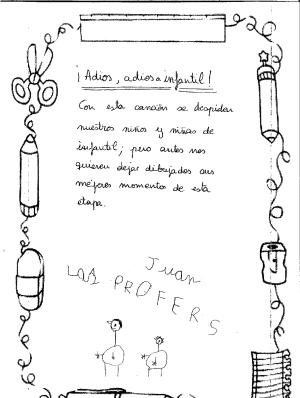 ¡Adios, adios a infantil!
Con esta canción se despiden
nuestros niños y niñas de
infantil; pero antes nos
quieren dejar dibujados sus
mejores momentos de esta
etapa.
Juan
LAS PROFERS